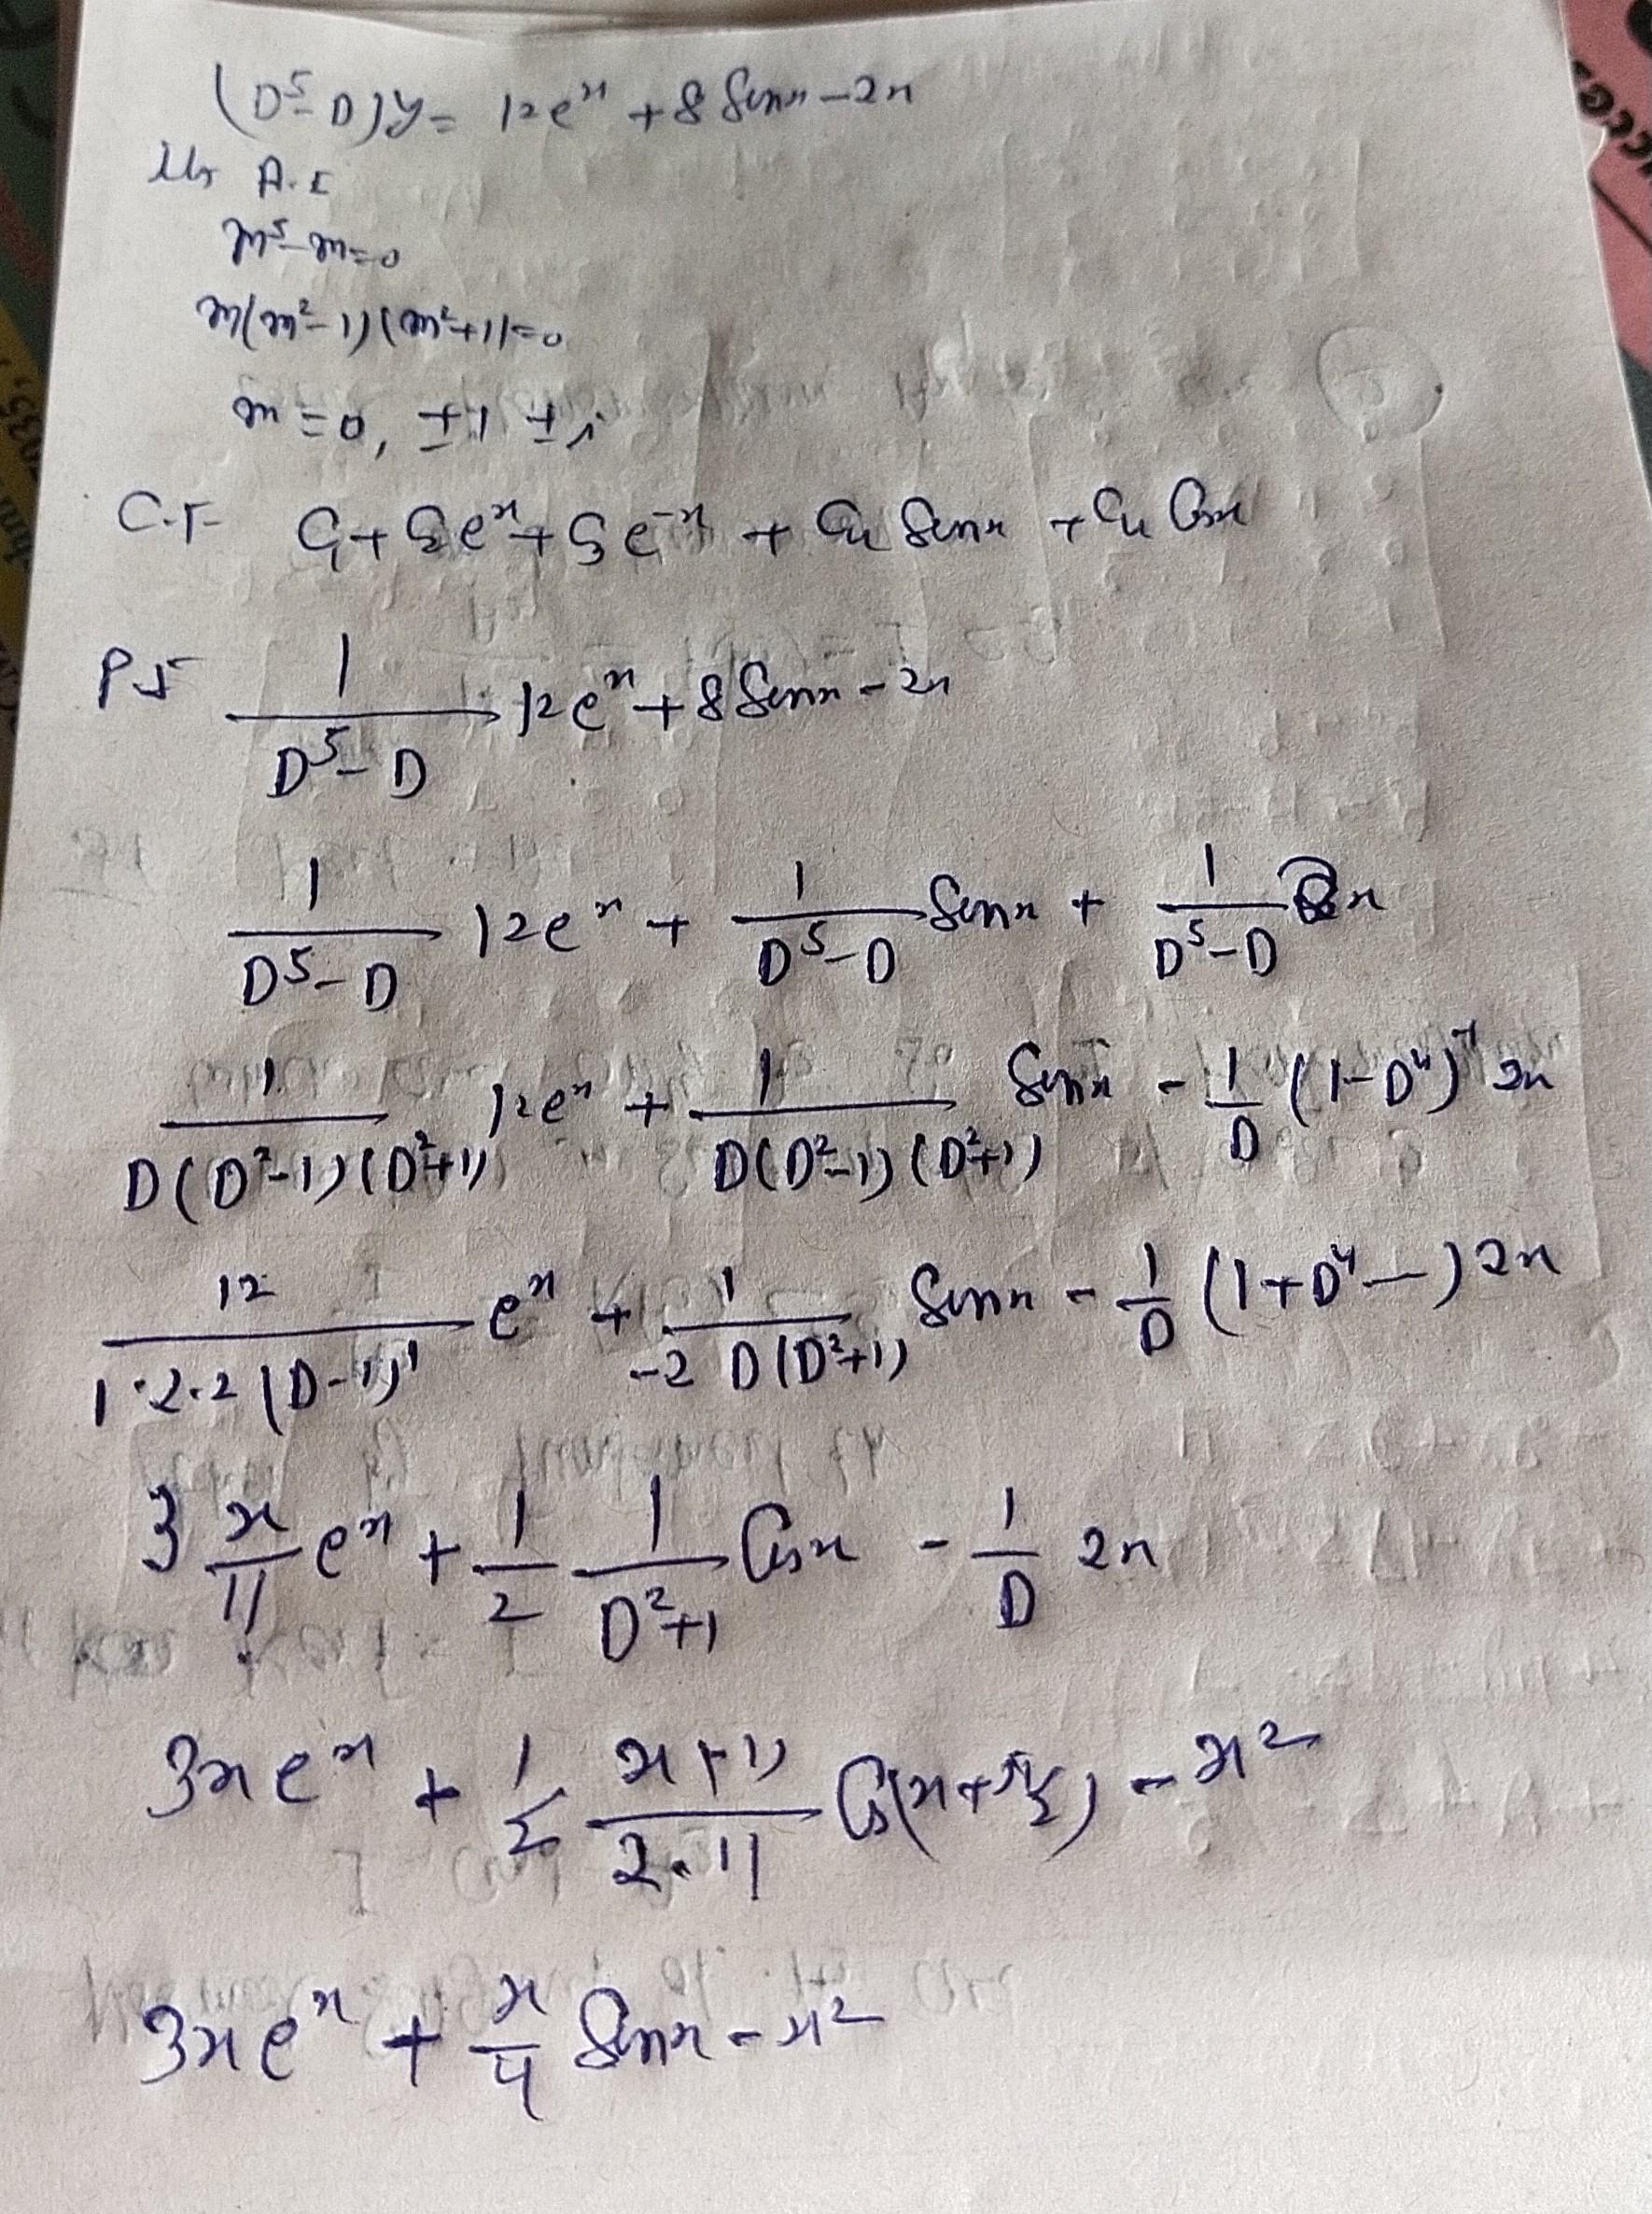 (D⁵-D)y = 12eˣ + 8 Sinx - 2x
Its A.E
m⁵-m=0
m(m²-1)(m²+1)=0
m = 0, ±1 ±i
C.F C₁ + C₂eˣ + C₃e⁻ˣ + C₄ Sinx + C₄ Cosx
P I 1/(D⁵-D) 12eˣ + 8 Sinx - 2x
1/(D⁵-D) 12eˣ + 1/(D⁵-D) Sinx + 1/(D⁵-D) 2x
1/(D(D²-1)(D²+1)) 12eˣ + 1/(D(D²-1)(D²+1)) Sinx - 1/D (1-D⁴)⁻¹ 2x
12/(1·2·2(D-1)¹) eˣ + 1/(-2 D(D²+1)) Sinx - 1/D (1+D⁴—) 2x
3 x/1! eˣ + 1/2 1/(D²+1) Cosx - 1/D 2x
3xeˣ + 1/2 x(-1)/(2·1!) Cos(x+π/2) - x²
3xeˣ + x/4 Sinx - x²